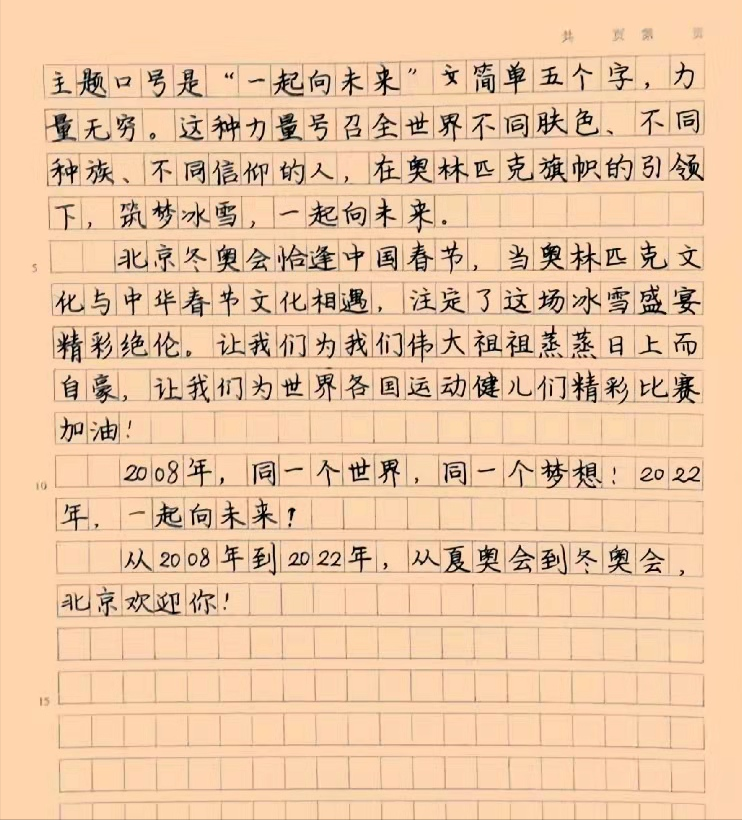 共 页 第 页
主题口号是“一起向未来”文简单五个字，力
量无穷。这种力量号召全世界不同肤色、不同
种族、不同信仰的人，在奥林匹克旗帜的引领
下，筑梦冰雪，一起向未来。
5 北京冬奥会恰逢中国春节，当奥林匹克文
化与中华春节文化相遇，注定了这场冰雪盛宴
精彩绝伦。让我们为我们伟大祖祖蒸蒸日上而
自豪，让我们为世界各国运动健儿们精彩比赛
加油！
10 2008年，同一个世界，同一个梦想！2022
年，一起向未来？
从2008年到2022年，从夏奥会到冬奥会，
北京欢迎你！
15